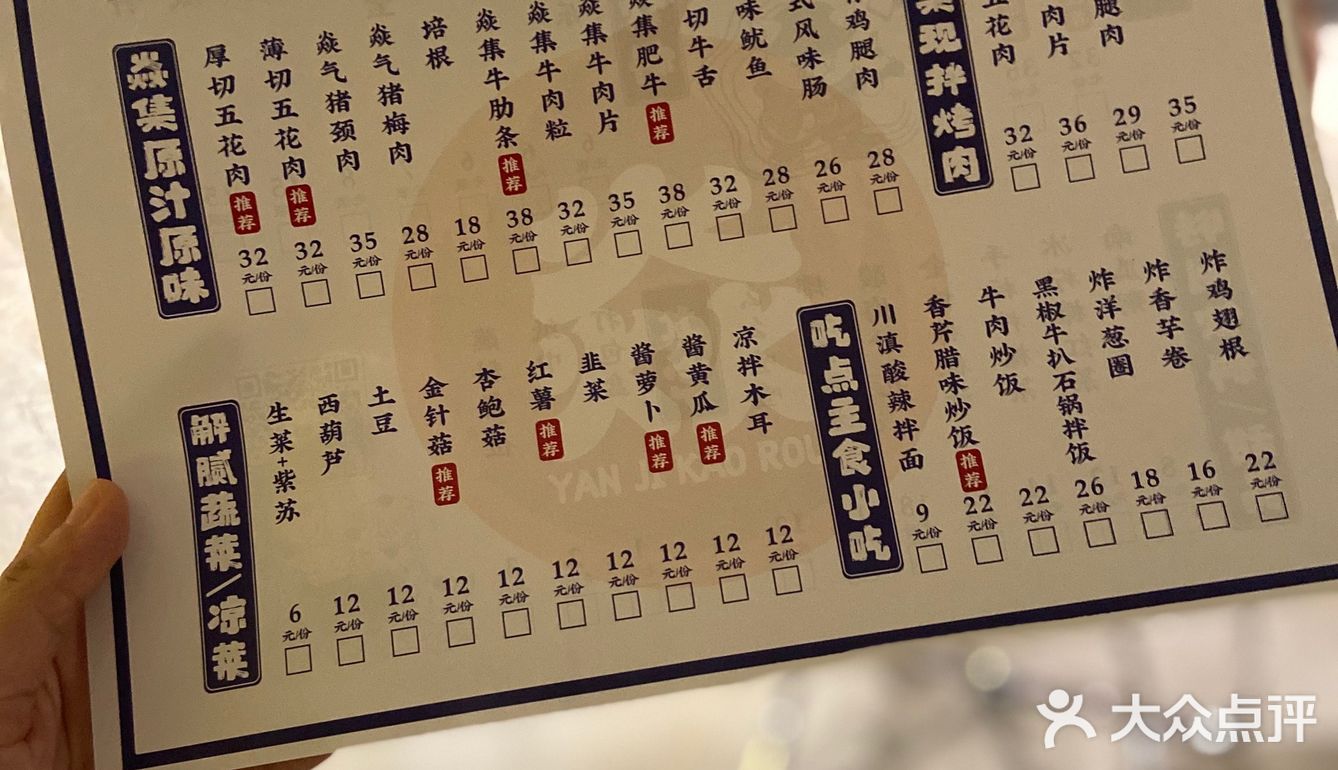 焱集原汁原味
厚切五花肉 推荐 32元/份
薄切五花肉 推荐 32元/份
焱气猪颈肉 35元/份
焱气猪梅肉 28元/份
培根 18元/份
焱集牛肋条 推荐 38元/份
焱集牛肉粒 32元/份
焱集牛肉片 35元/份
焱集肥牛 推荐 38元/份
切牛舌 32元/份
味鱿鱼 28元/份
式风味肠 26元/份
鸡腿肉 28元/份
现拌烤肉
五花肉 32元/份
肉片 36元/份
腿肉 29元/份
35元/份
解腻蔬菜/凉菜
生菜+紫苏 6元/份
西葫芦 12元/份
土豆 12元/份
金针菇 推荐 12元/份
杏鲍菇 12元/份
红薯 推荐 12元/份
韭菜 12元/份
酱萝卜 推荐 12元/份
酱黄瓜 推荐 12元/份
凉拌木耳 12元/份
吃点主食小吃
川滇酸辣拌面 9元/份
香芹腊味炒饭 推荐 22元/份
牛肉炒饭 22元/份
黑椒牛扒石锅拌饭 26元/份
炸洋葱圈 18元/份
炸香芋卷 16元/份
炸鸡翅根 22元/份
YAN JI KAO ROU
大众点评